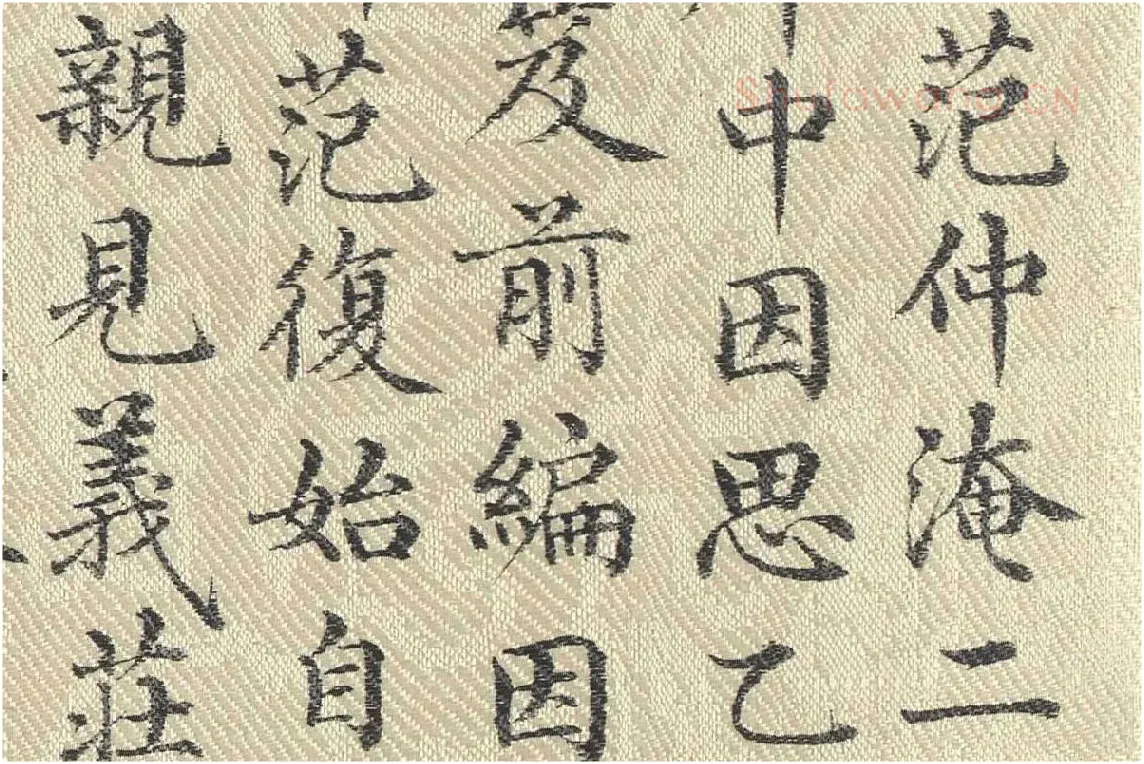 范仲淹二
中因思乙
前編因
范復始自
親見義莊